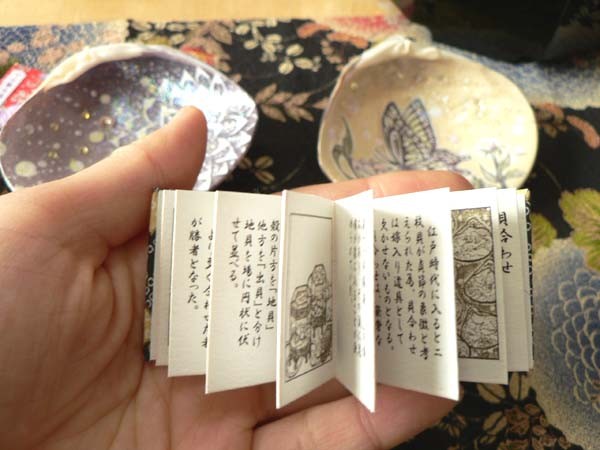 貝合わせ
江戸時代に入ると二
枚貝が貞節の象徴と考
えられた為、貝合わせ
は嫁入り道具として
欠かせないものとなる。
殻の片方を「地貝」
他方を「出貝」と分け
地貝を場に円状に伏
せて並べる。
より多く合わせた者
が勝者となった。